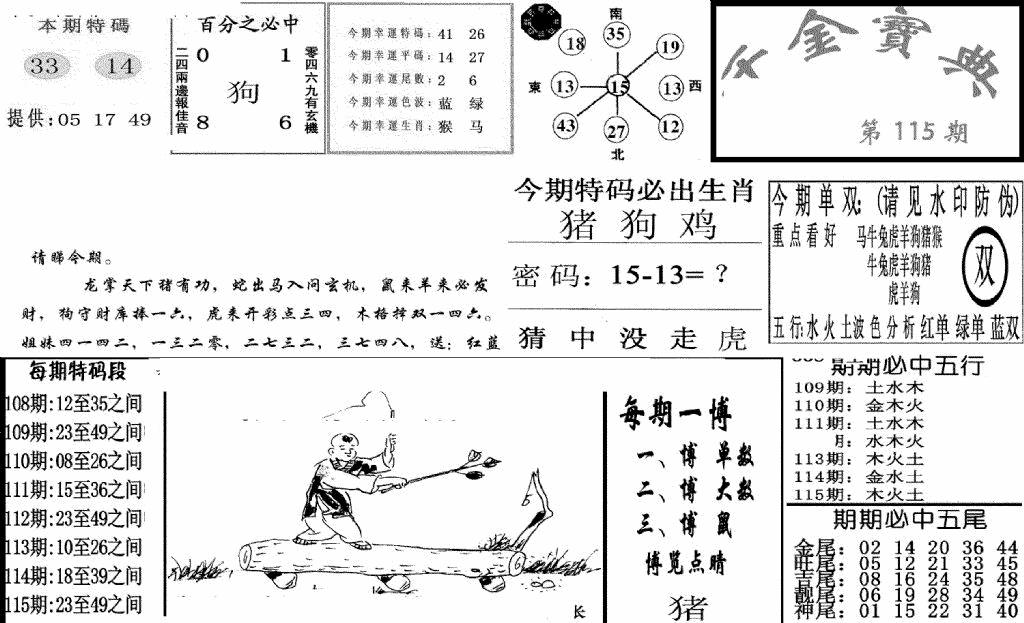 本期特碼
33 14
提供:05 17 49
百分之必中
二四兩邊報佳音
0 1
狗
8 6
零四六九有玄機
今期幸運特碼: 41 26
今期幸運平碼: 14 27
今期幸運尾數: 2 6
今期幸運色波: 蓝 绿
今期幸運生肖: 猴 马
南
35
18 19
東 13 15 13 西
43 27 12
北
金寶典
第 115 期
请睇令期。
龙掌天下猪有功，蛇出马入问玄机，鼠来羊来必发
财，狗守财库捧一六，虎来开彩点三四，木格择双一四六。
姐妹四一四二，一三二零，二七三二，三七四八，送：红蓝
今期特码必出生肖
猪 狗 鸡
密码：15-13=？
猜中没走虎
今期单双:(请见水印防伪)
重点看好 马牛兔虎羊狗猪猴
牛兔虎羊狗猪
虎羊狗
双
五行:水火土波色分析 红单 绿单 蓝双
每期特码段
108期:12至35之间
109期:23至49之间
110期:08至26之间
111期:15至36之间
112期:23至49之间
113期:10至26之间
114期:18至39之间
115期:23至49之间
每期一博
一、博 单数
二、博 大数
三、博 鼠
博览点睛
猪
期期必中五行
109期：土水木
110期：金木火
111期：土水木
月：水木火
113期：木火土
114期：金水土
115期：木火土
期期必中五尾
金尾：02 14 20 36 44
旺尾：05 12 21 33 45
吉尾：08 16 24 35 48
靓尾：06 19 28 34 49
神尾：01 15 22 31 40